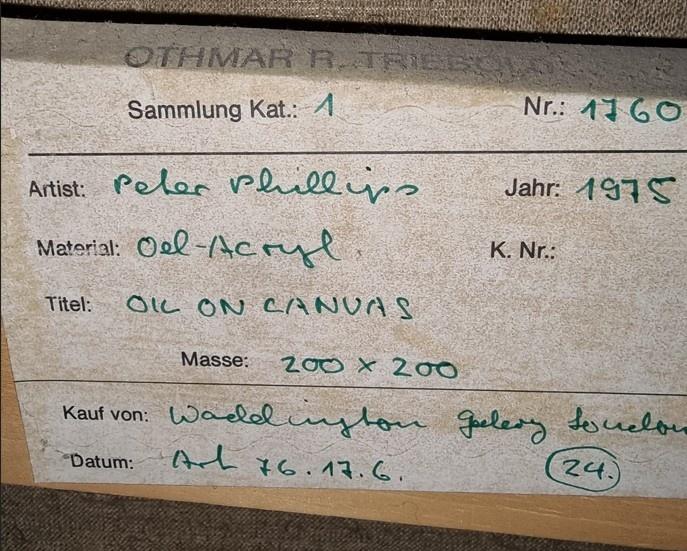 OTHMAR R. TRIEBOLD
Sammlung Kat.: 1 Nr.: 1760
Artist: Peter Phillips Jahr: 1975
Material: Oel-Acryl K. Nr.:
Titel: OIL ON CANVAS
Masse: 200 x 200
Kauf von: Waddington Galery London
Datum: Art 76. 17.6. 24.